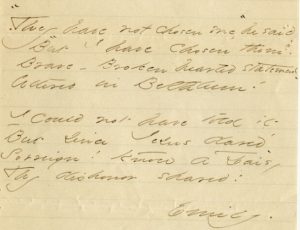 "They have not chosen me," he said,
"But I have chosen them!"
Brave – Broken hearted statement –
Uttered in Bethleem!

I could not have told it,
But since Jesus dared –
Sovreign! Know a Daisy
Thy dishonor shared!

Emily.